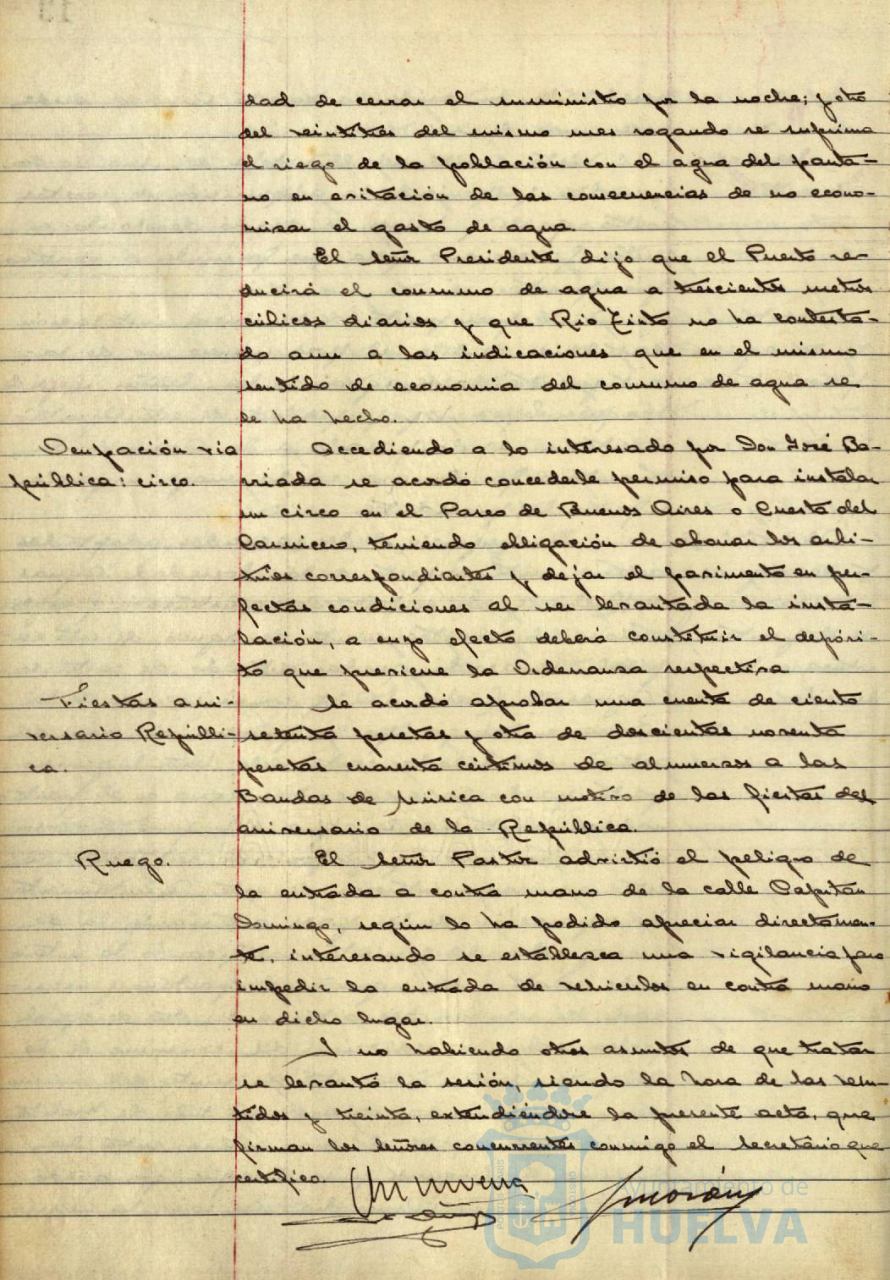 dad de cerrar el suministro por la noche; y otro
del veintitres del mismo mes rogando se suprima
el riego de la población con el agua del panta-
no en evitación de las consecuencias de no econo-
misar el gasto de agua.
El señor Presidente dijo que el Puerto re-
ducirá el consumo de agua a trescientos metros
cúbicos diarios y que Rio Tinto no ha contesta-
do aun a las indicaciones que en el mismo
sentido de economia del consumo de agua se
le ha hecho.
Ocupación via
pública: circo.
Accediendo a lo interesado por Don José Ba-
rriada se acordó concederle permiso para instalar
un circo en el Paseo de Buenos Aires o Cuesta del
Carnicero, teniendo obligación de abonar los arbi-
trios correspondientes y dejar el pavimento en per-
fectas condiciones al ser levantada la insta-
lación, a cuyo efecto deberá constituir el depósi-
to que previene la Ordenanza respectiva
Fiestas ani-
versario Repúbli-
ca.
Se acordó aprobar una cuenta de ciento
setenta pesetas y otra de doscientas noventa
pesetas cuarenta céntimos de almuerzos a las
Bandas de Música con motivo de las fiestas del
aniversario de la República.
Ruego.
El señor Pastor advirtió el peligro de
la entrada a contra mano de la calle Capitan
Domingo, según lo ha podido apreciar directamen-
te, interesando se establezca una vigilancia para
impedir la entrada de vehiculos en contra mano
en dicho lugar.
Y no habiendo otros asuntos de que tratar
se levantó la sesión, siendo la hora de las vein-
tidos y treinta, extendiéndose la presente acta, que
firman los señores concurrentes conmigo el Secretario que
certifico.
Ayuntamiento de
HUELVA